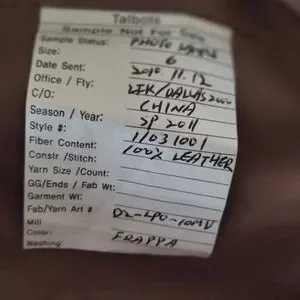 Talbots
Sample Not For Sale
Sample Status: PHOTO SAMPLE
Size: 6
Date Sent: 2010.11.12
Office / Fty: LEK/DALLAS 2000
C/O: CHINA
Season / Year: SP 2011
Style #: 11031001
Fiber Content: 100% LEATHER
Constr /Stitch:
Yarn Size /Count:
GG/Ends / Fab Wt:
Garment Wt:
Fab/Yarn Art #
Mill
Color: FRAPPA
Washing: